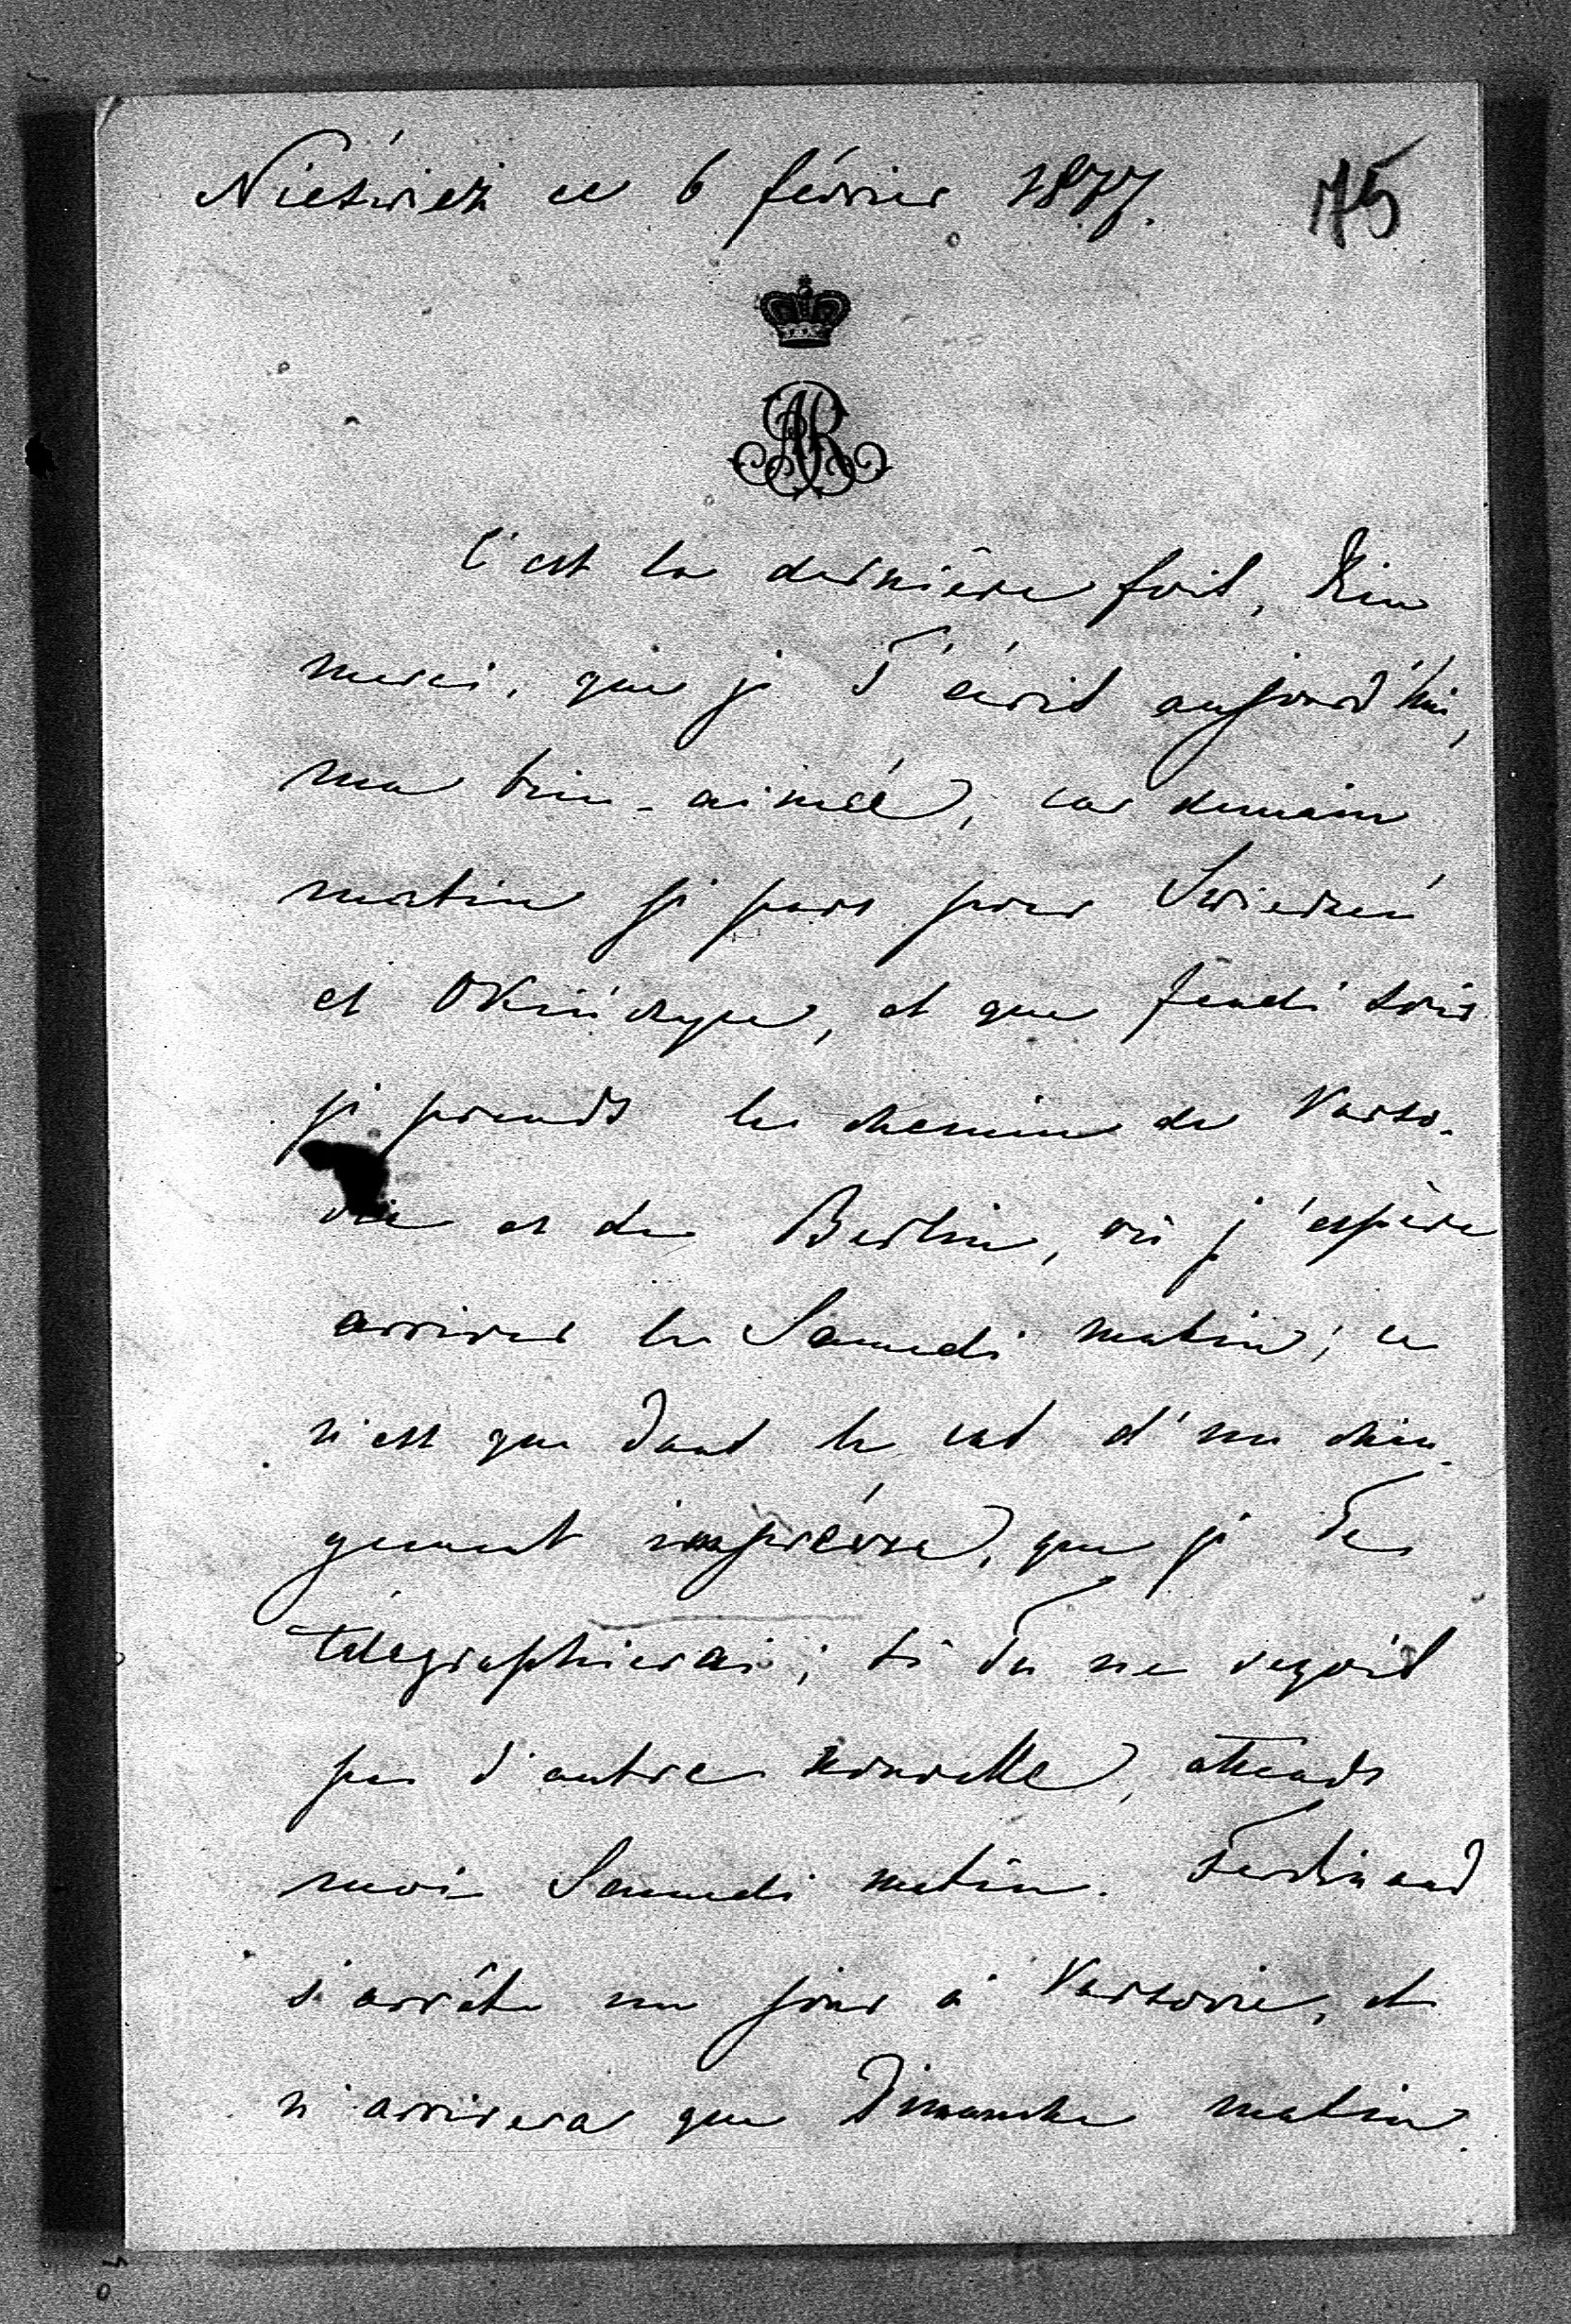 Nieświeź ce 6 février 1877. 75
AR
C'est la dernière fois, Dieu
merci, que je T'écris aujourd'hui,
ma bien-aimée, car demain
matin je pars pour Swierzeń
et Okińczyce, et que Jeudi soir
je prends le chemin de Varso-
vie et de Berlin, où j'espère
arriver le Samedi matin; ce
n'est que dans le cas d'un chan-
gement imprévu, que je Te
télégraphierai; si Tu ne reçois
pas d'autre nouvelle, attends
moi Samedi matin. Ferdinand
s'arrête un jour à Varsovie, et
n'arrivera que Dimanche matin.